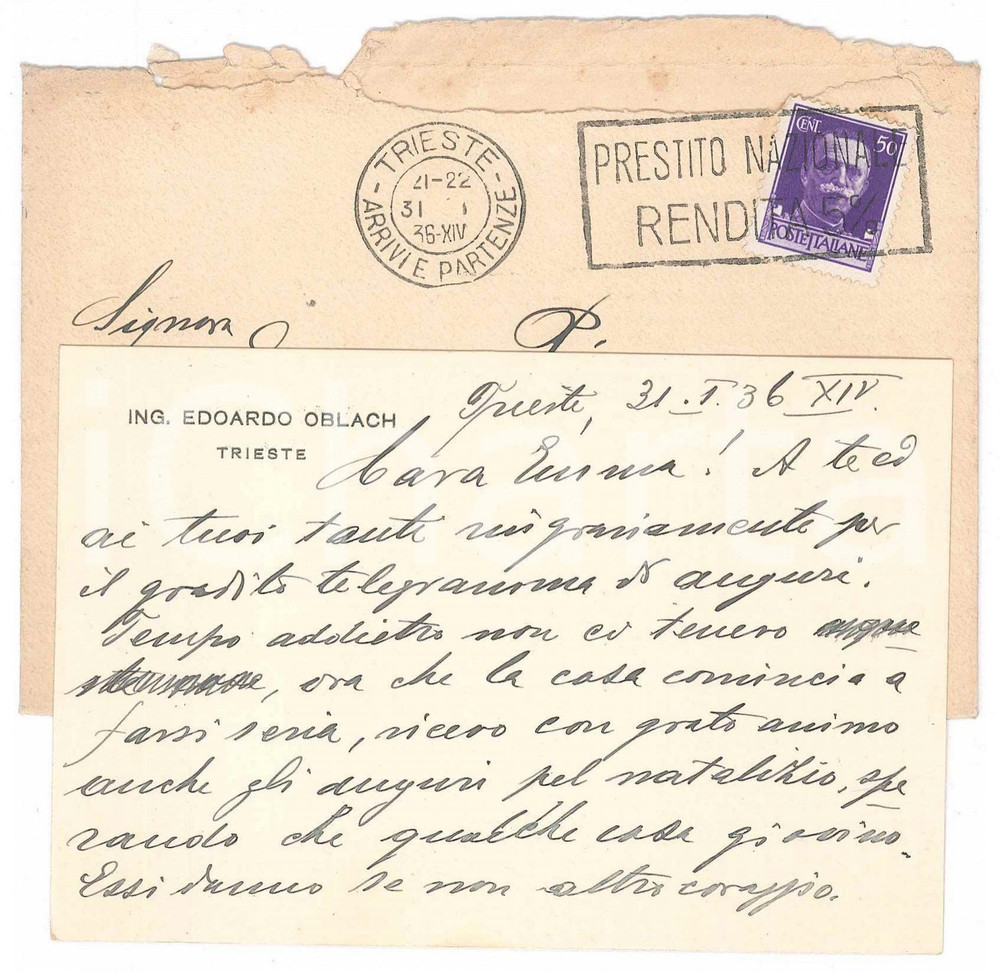 TRIESTE
21-22
31 I
36-XIV
ARRIVI E PARTENZE
PRESTITO NAZIONALE
RENDITA 5%
CENT. 50
POSTE ITALIANE
Signora P.
ING. EDOARDO OBLACH
TRIESTE
Trieste, 31.I.36 XIV.
Cara Emma! A te ed
ai tuoi tanti ringraziamenti per
il gradito telegramma di auguri.
Tempo addietro non ci tenevo
, ora che la cosa comincia a
farsi seria, ricevo con grato animo
anche gli auguri pel natalizio, spe
rando che qualche cosa giovino.
Essi danno se non altro coraggio.